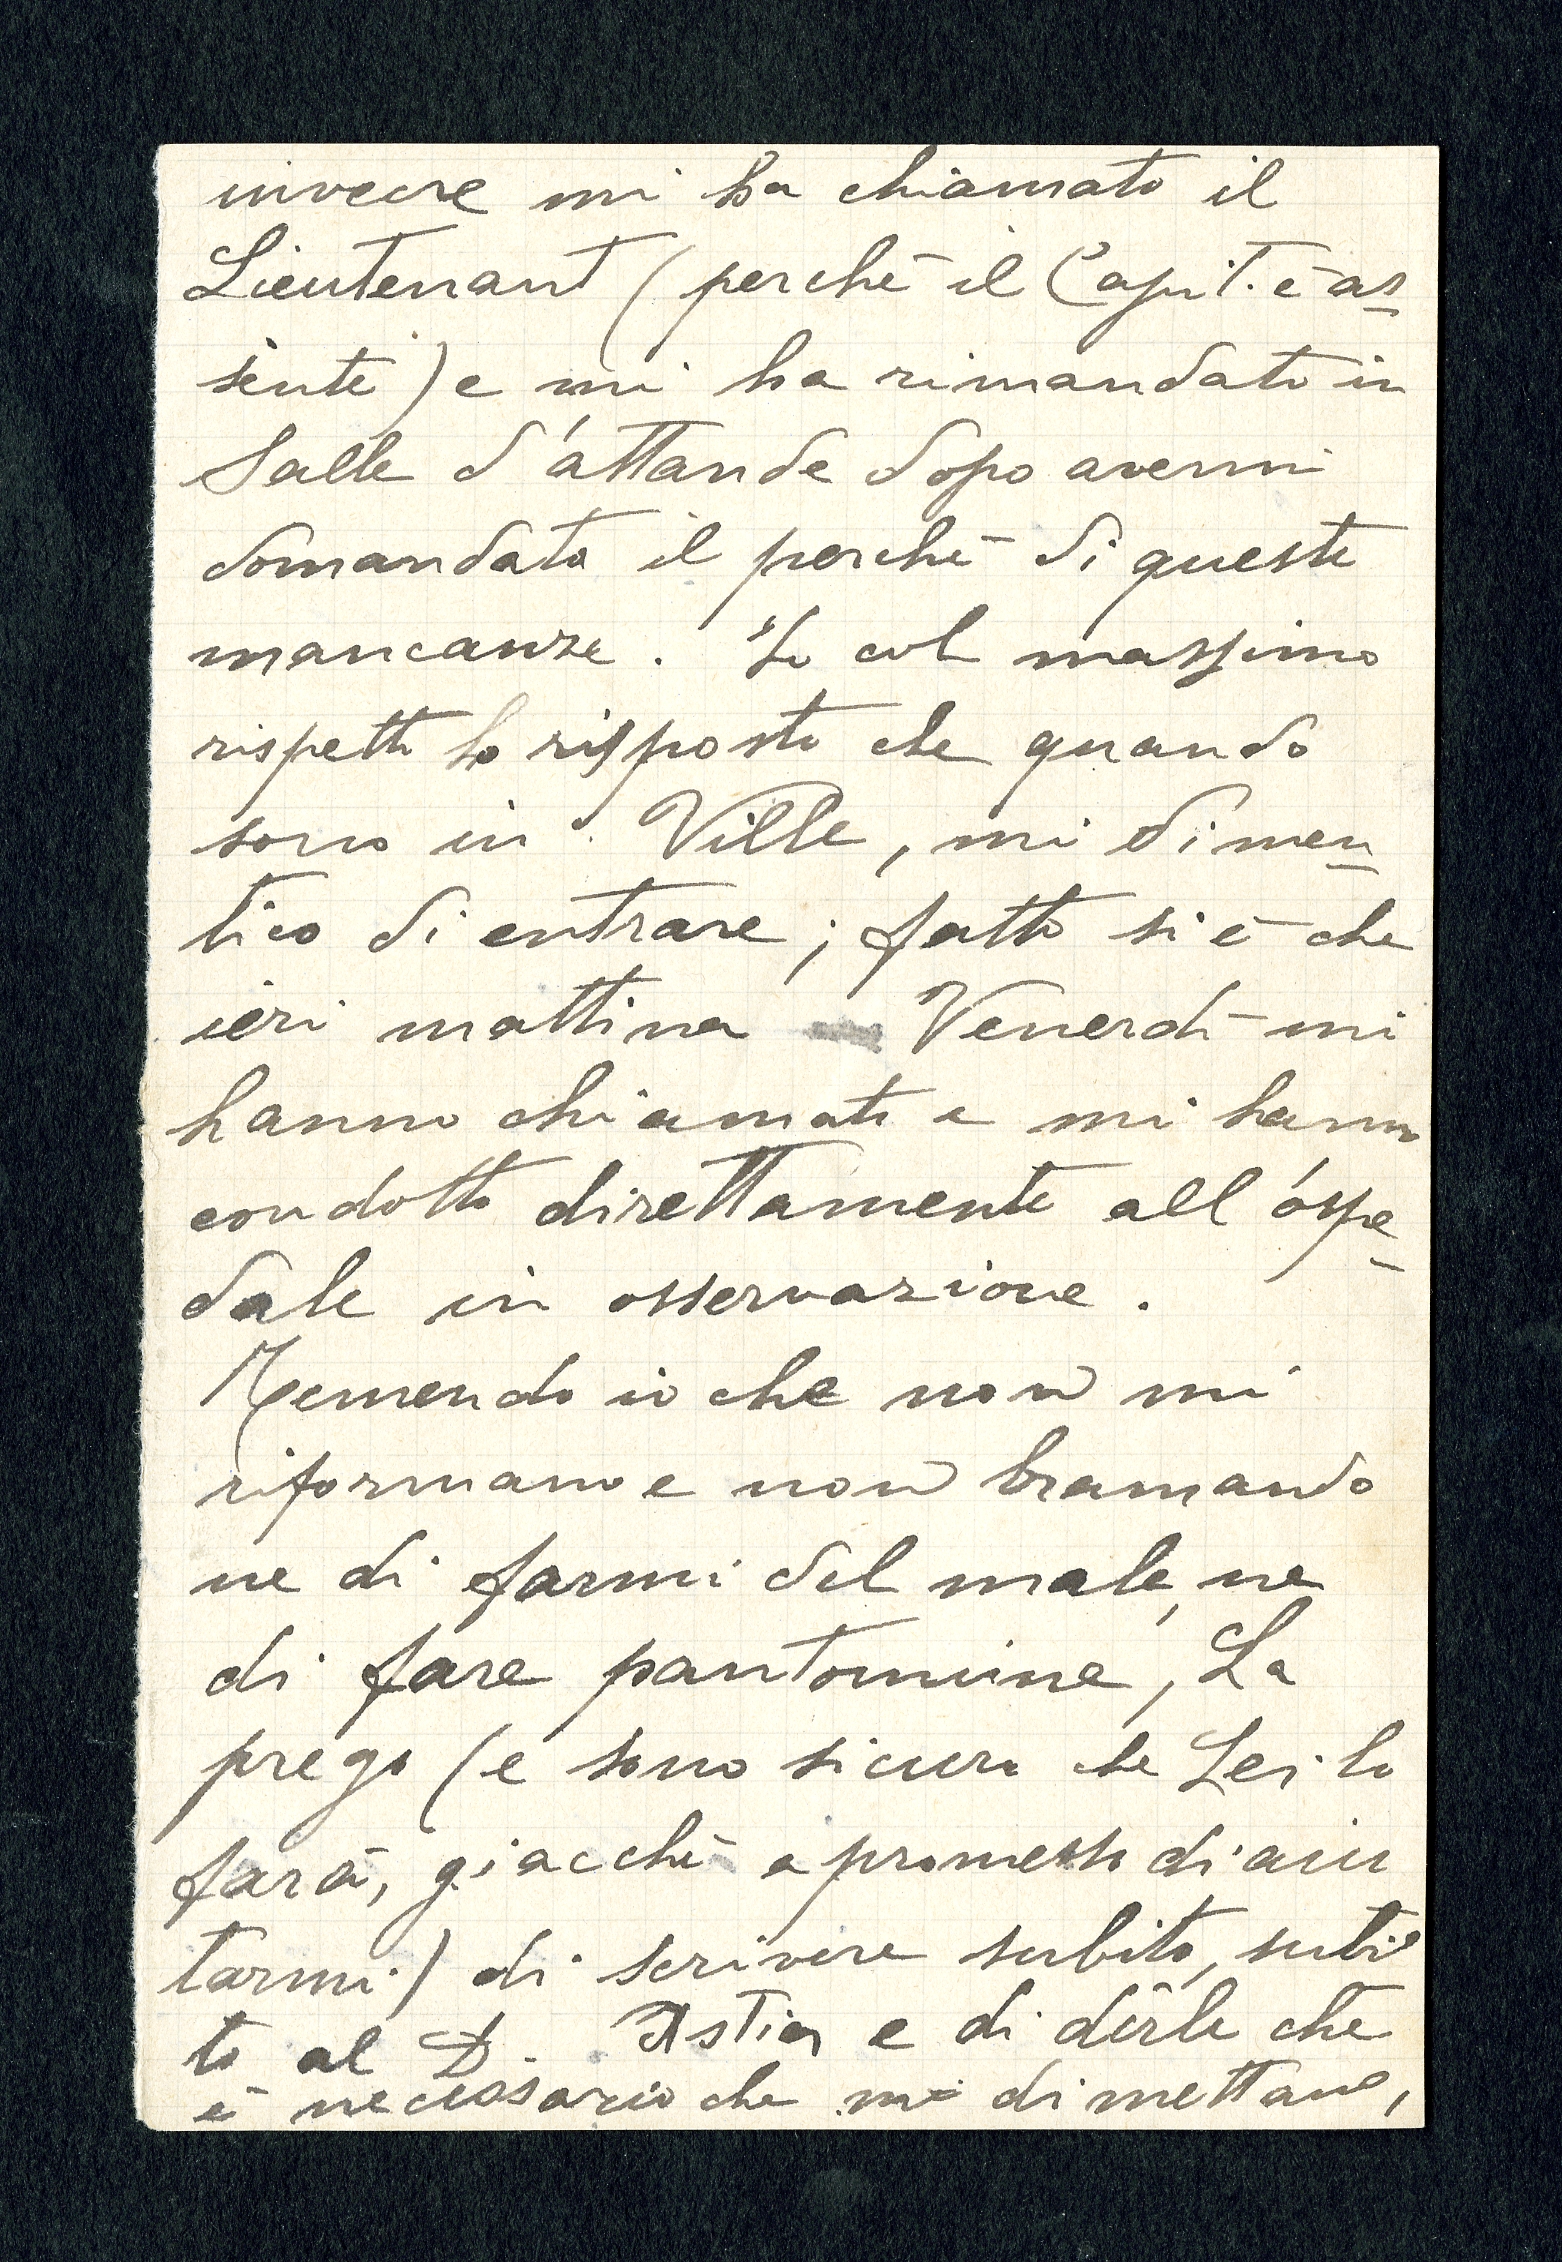 invecre mi ha chiamato il
Lieutenant (perchè il Capit. è as-
sente) e mi ha rimandato in
Salle d'attande dopo avermi
domandato il perchè di queste
mancanze. Io col massimo
rispetto ho risposto che quando
sono in Ville, mi dimen-
tico di entrare; fatto si è che
ieri mattina Venerdì mi
hanno chiamato e mi hanno
condotto direttamente all'ospe-
dale in osservazione.
Temendo io che non mi
riformano e non bramando
ne di farmi del male, ne
di fare pantomine, La
prego (e sono sicuro che Lei lo
farà, giacchè a promesso di aiu
tarmi) di scrivere subito, subi
to al D. Astier e di dirle che
è necessario che mi dimettano,